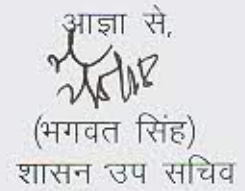 आज्ञा से,
(भगवत सिंह)
शासन उप सचिव